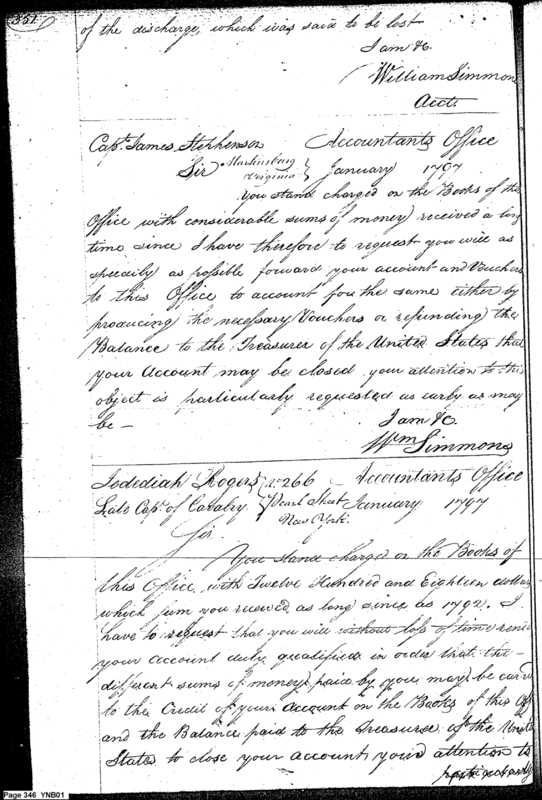 351
of the discharge, which was said to be lost
I am &c.
William Simmons
Acct.
Capt. James Stephenson Accountants Office
Sir Martinsburg Virginia } January 1797
You stand charged on the Books of this
Office with considerable sums of money received a long
time since I have therefore to request you will as
speedily as possible forward your account and Vouchers
to this Office to account for the same either by
producing the necessary Vouchers or refunding the
Balance to the Treasurer of the United States that
your Account may be closed your attention to this
object is particularly requested as early as may
be —
I am &c.
Wm Simmons
Jedediah Rogers No 266 — Accountants Office
Late Capt. of Cavalry } Pearl Street January 1797
New York.
Sir.
You stand charged on the Books of
this Office with Twelve Hundred and Eighteen dollars
which sum you received as long since as 1792. I
have to request that you will without loss of time
your account duly qualified in order that the
different sums of money paid by you may be
to the Credit of your account on the Books of this
and the Balance paid to the Treasurer of the
States to close your account your attention to
particularly
Page 346 YNB01